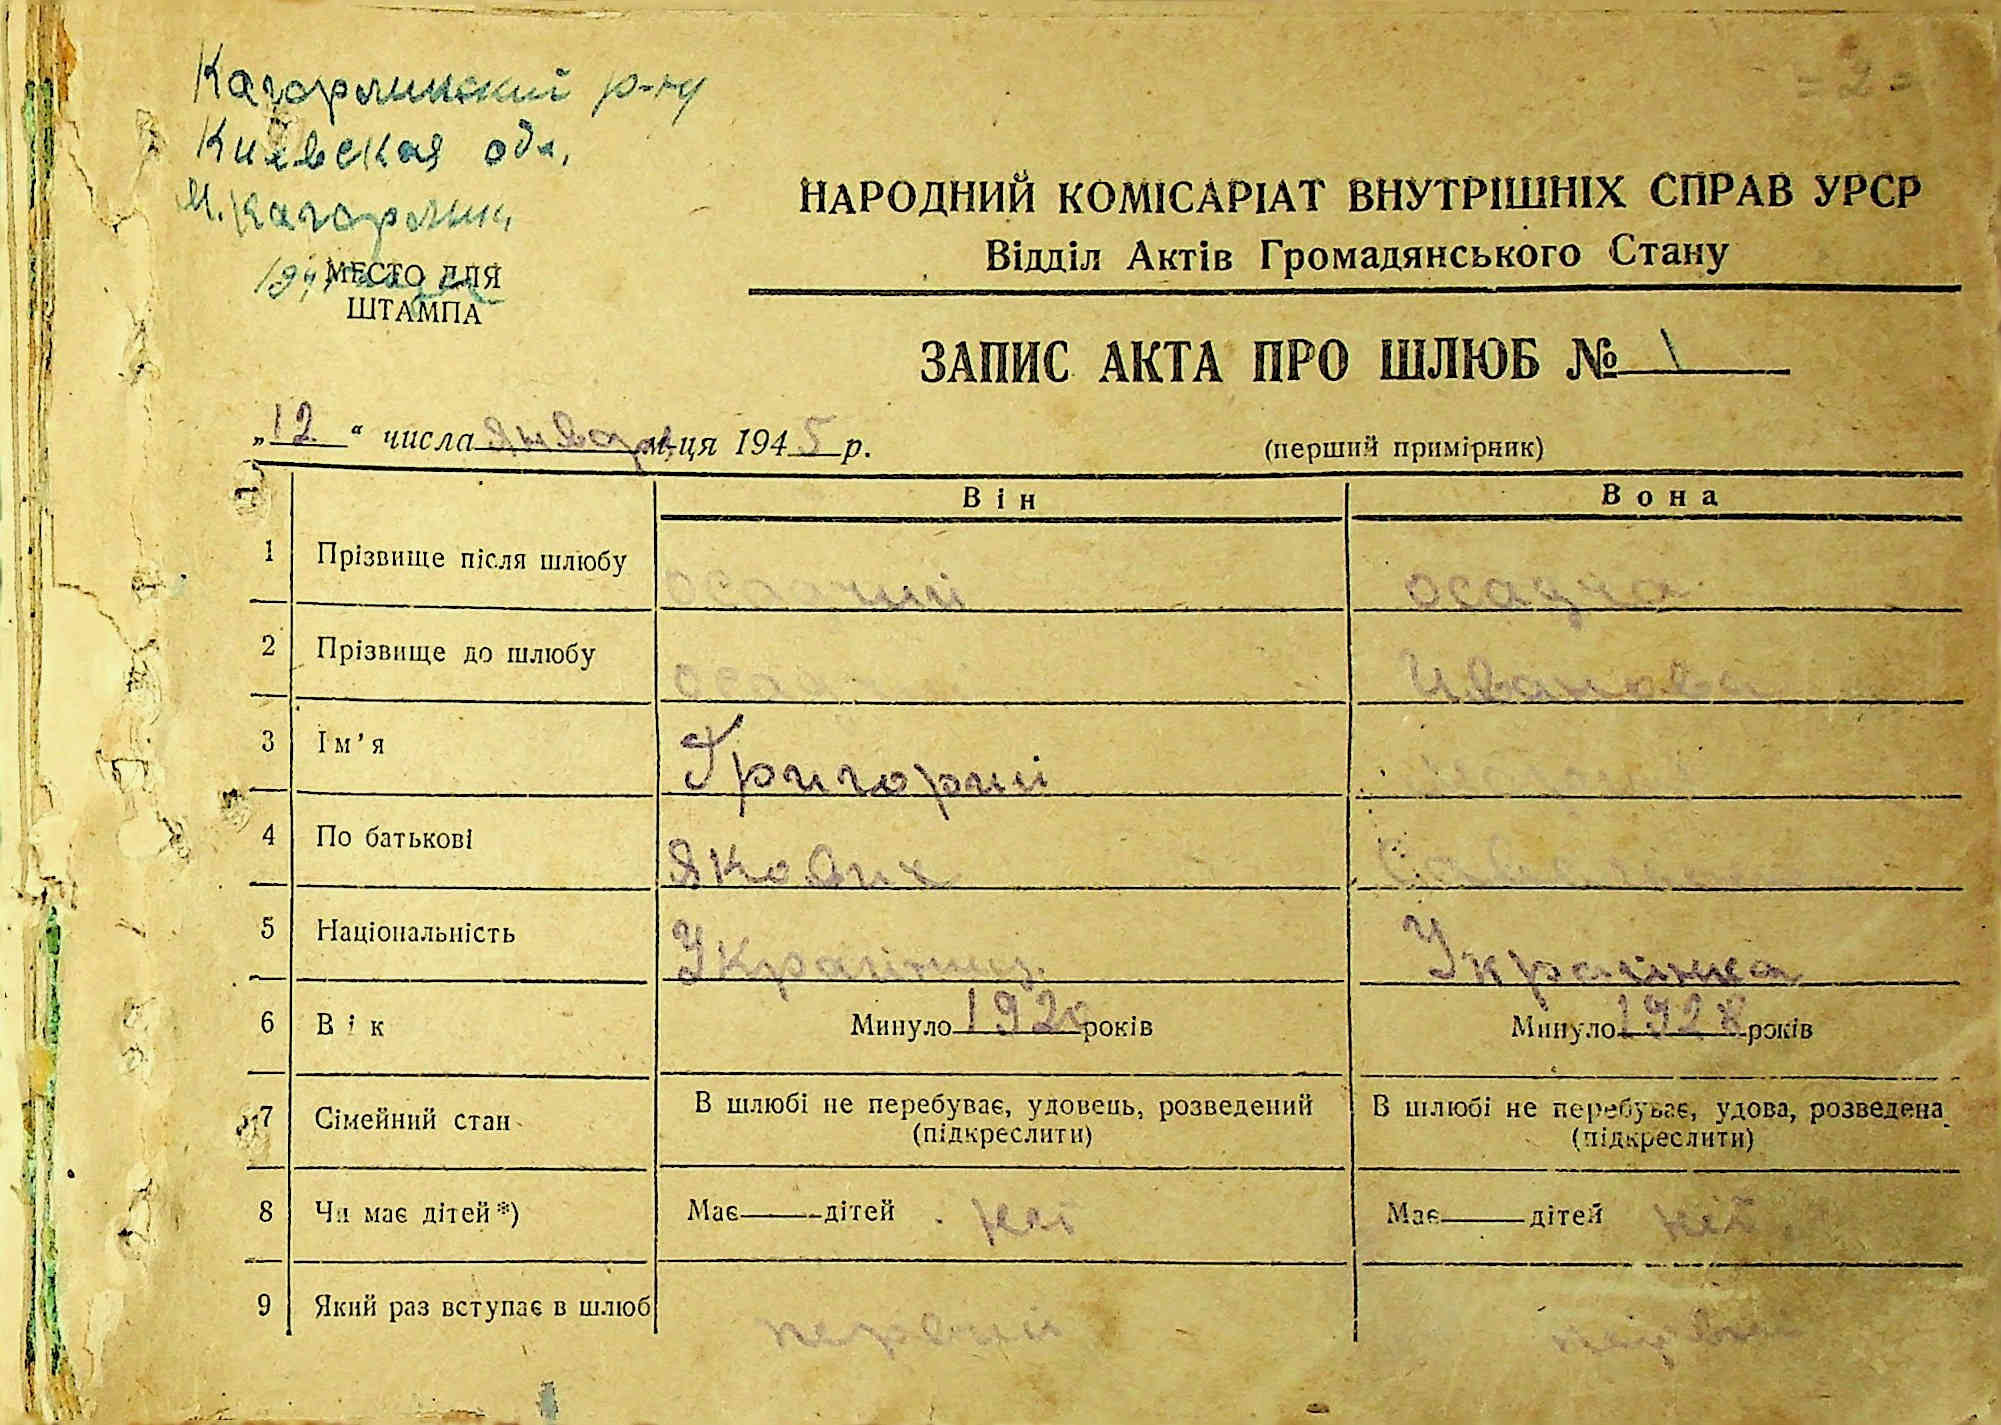 = 2 =
Кагорлинский р-ну
Киевская обл.
М. Кагорлик
МЕСТО ДЛЯ
ШТАМПА
НАРОДНИЙ КОМІСАРІАТ ВНУТРІШНІХ СПРАВ УРСР
Відділ Актів Громадянського Стану
ЗАПИС АКТА ПРО ШЛЮБ № 1
„12“ числа января м-ця 1945 р.
(перший примірник)
Він Вона
1 Прізвище після шлюбу осадчий осадча
2 Прізвище до шлюбу Иванова
3 Ім'я Григорий
4 По батькові Якович
5 Національність Українец Українка
6 Вік Минуло 1920 років Минуло 1928 років
7 Сімейний стан В шлюбі не перебуває, удовець, розведений (підкреслити) В шлюбі не перебуває, удова, розведена (підкреслити)
8 Чи має дітей*) Має дітей ні Має дітей ні
9 Який раз вступає в шлюб первий